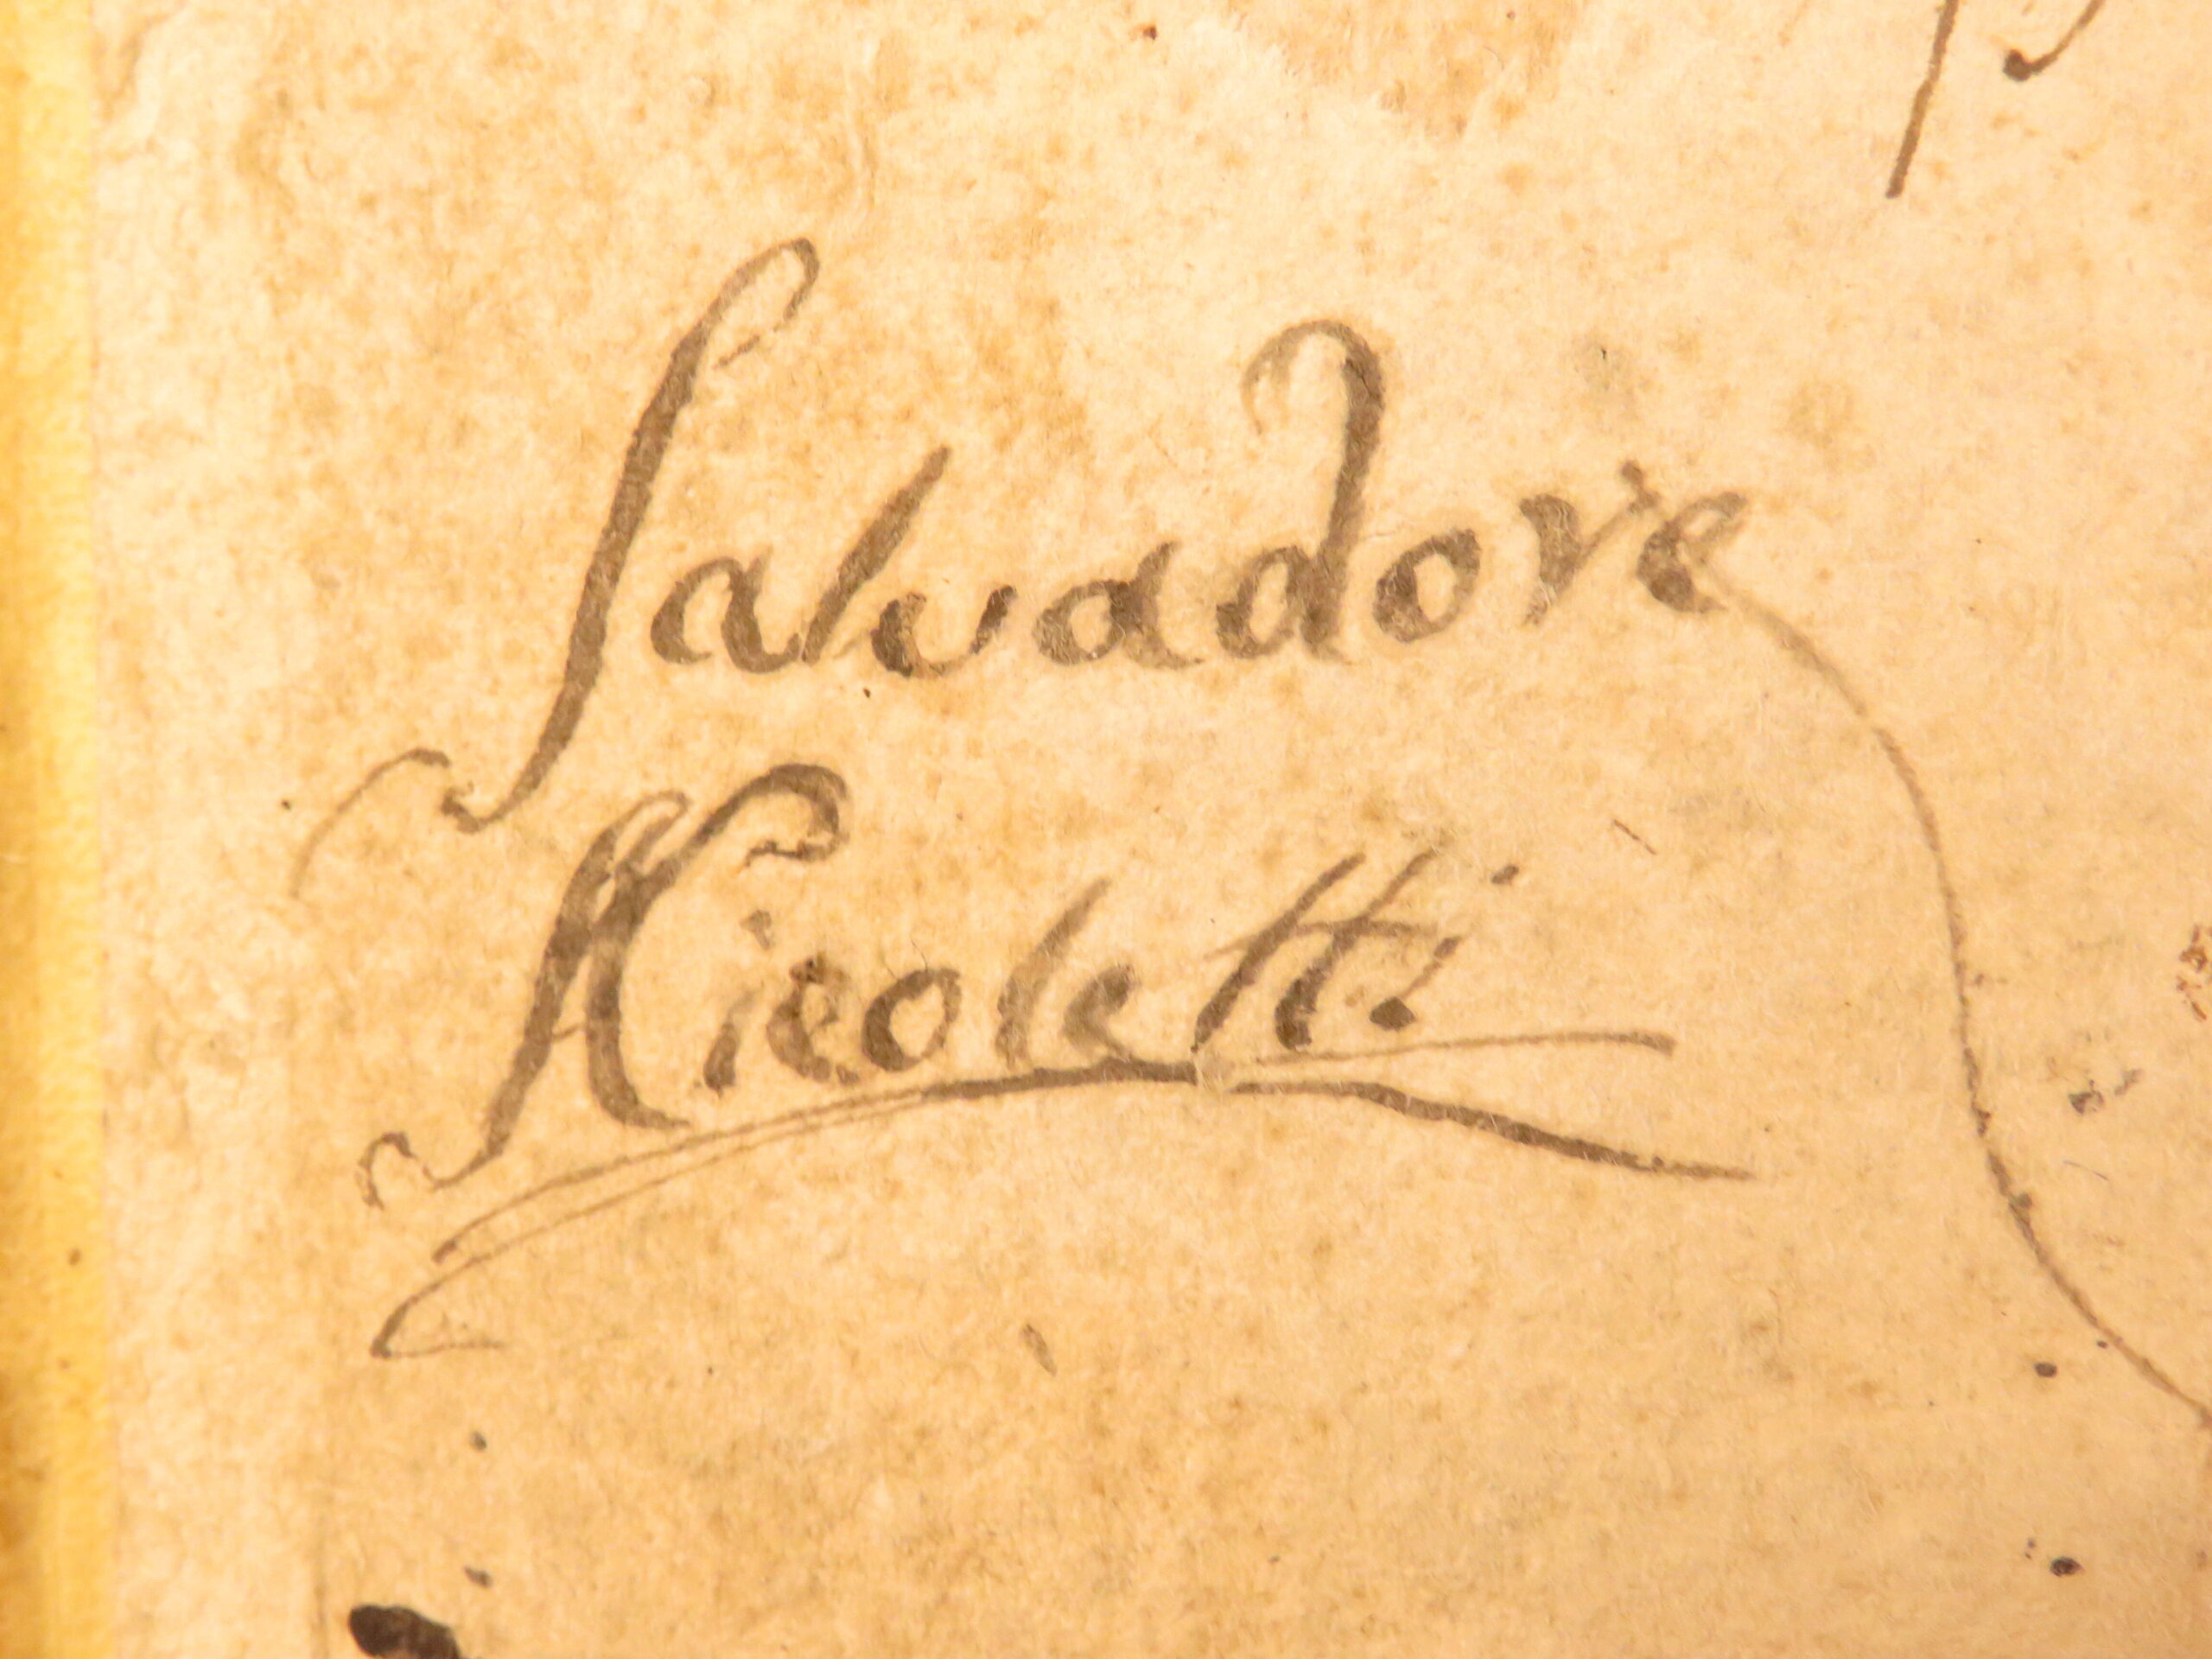 Salvadore
Nicoletti